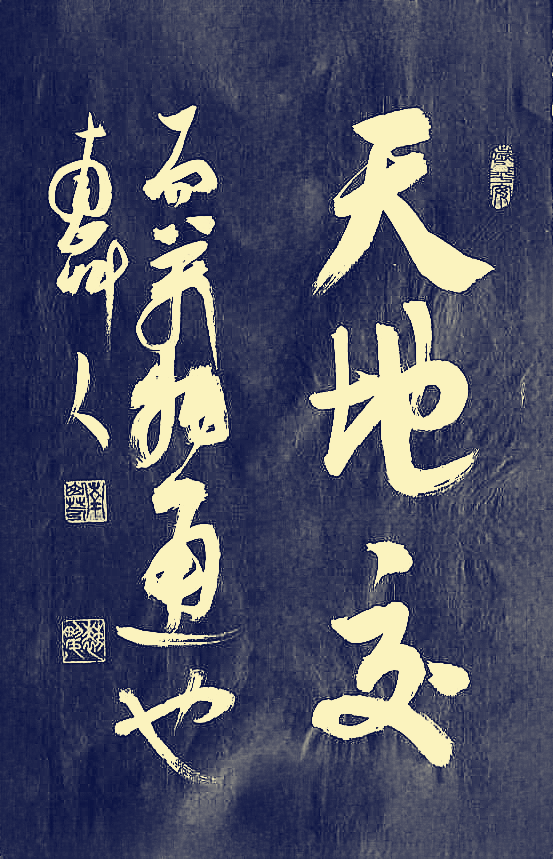 天地交
而萬物通也
人